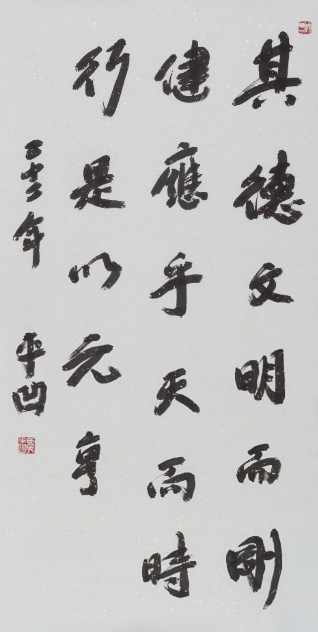 其德文明而剛
健應乎天而時
行是以元亨
年
平凹